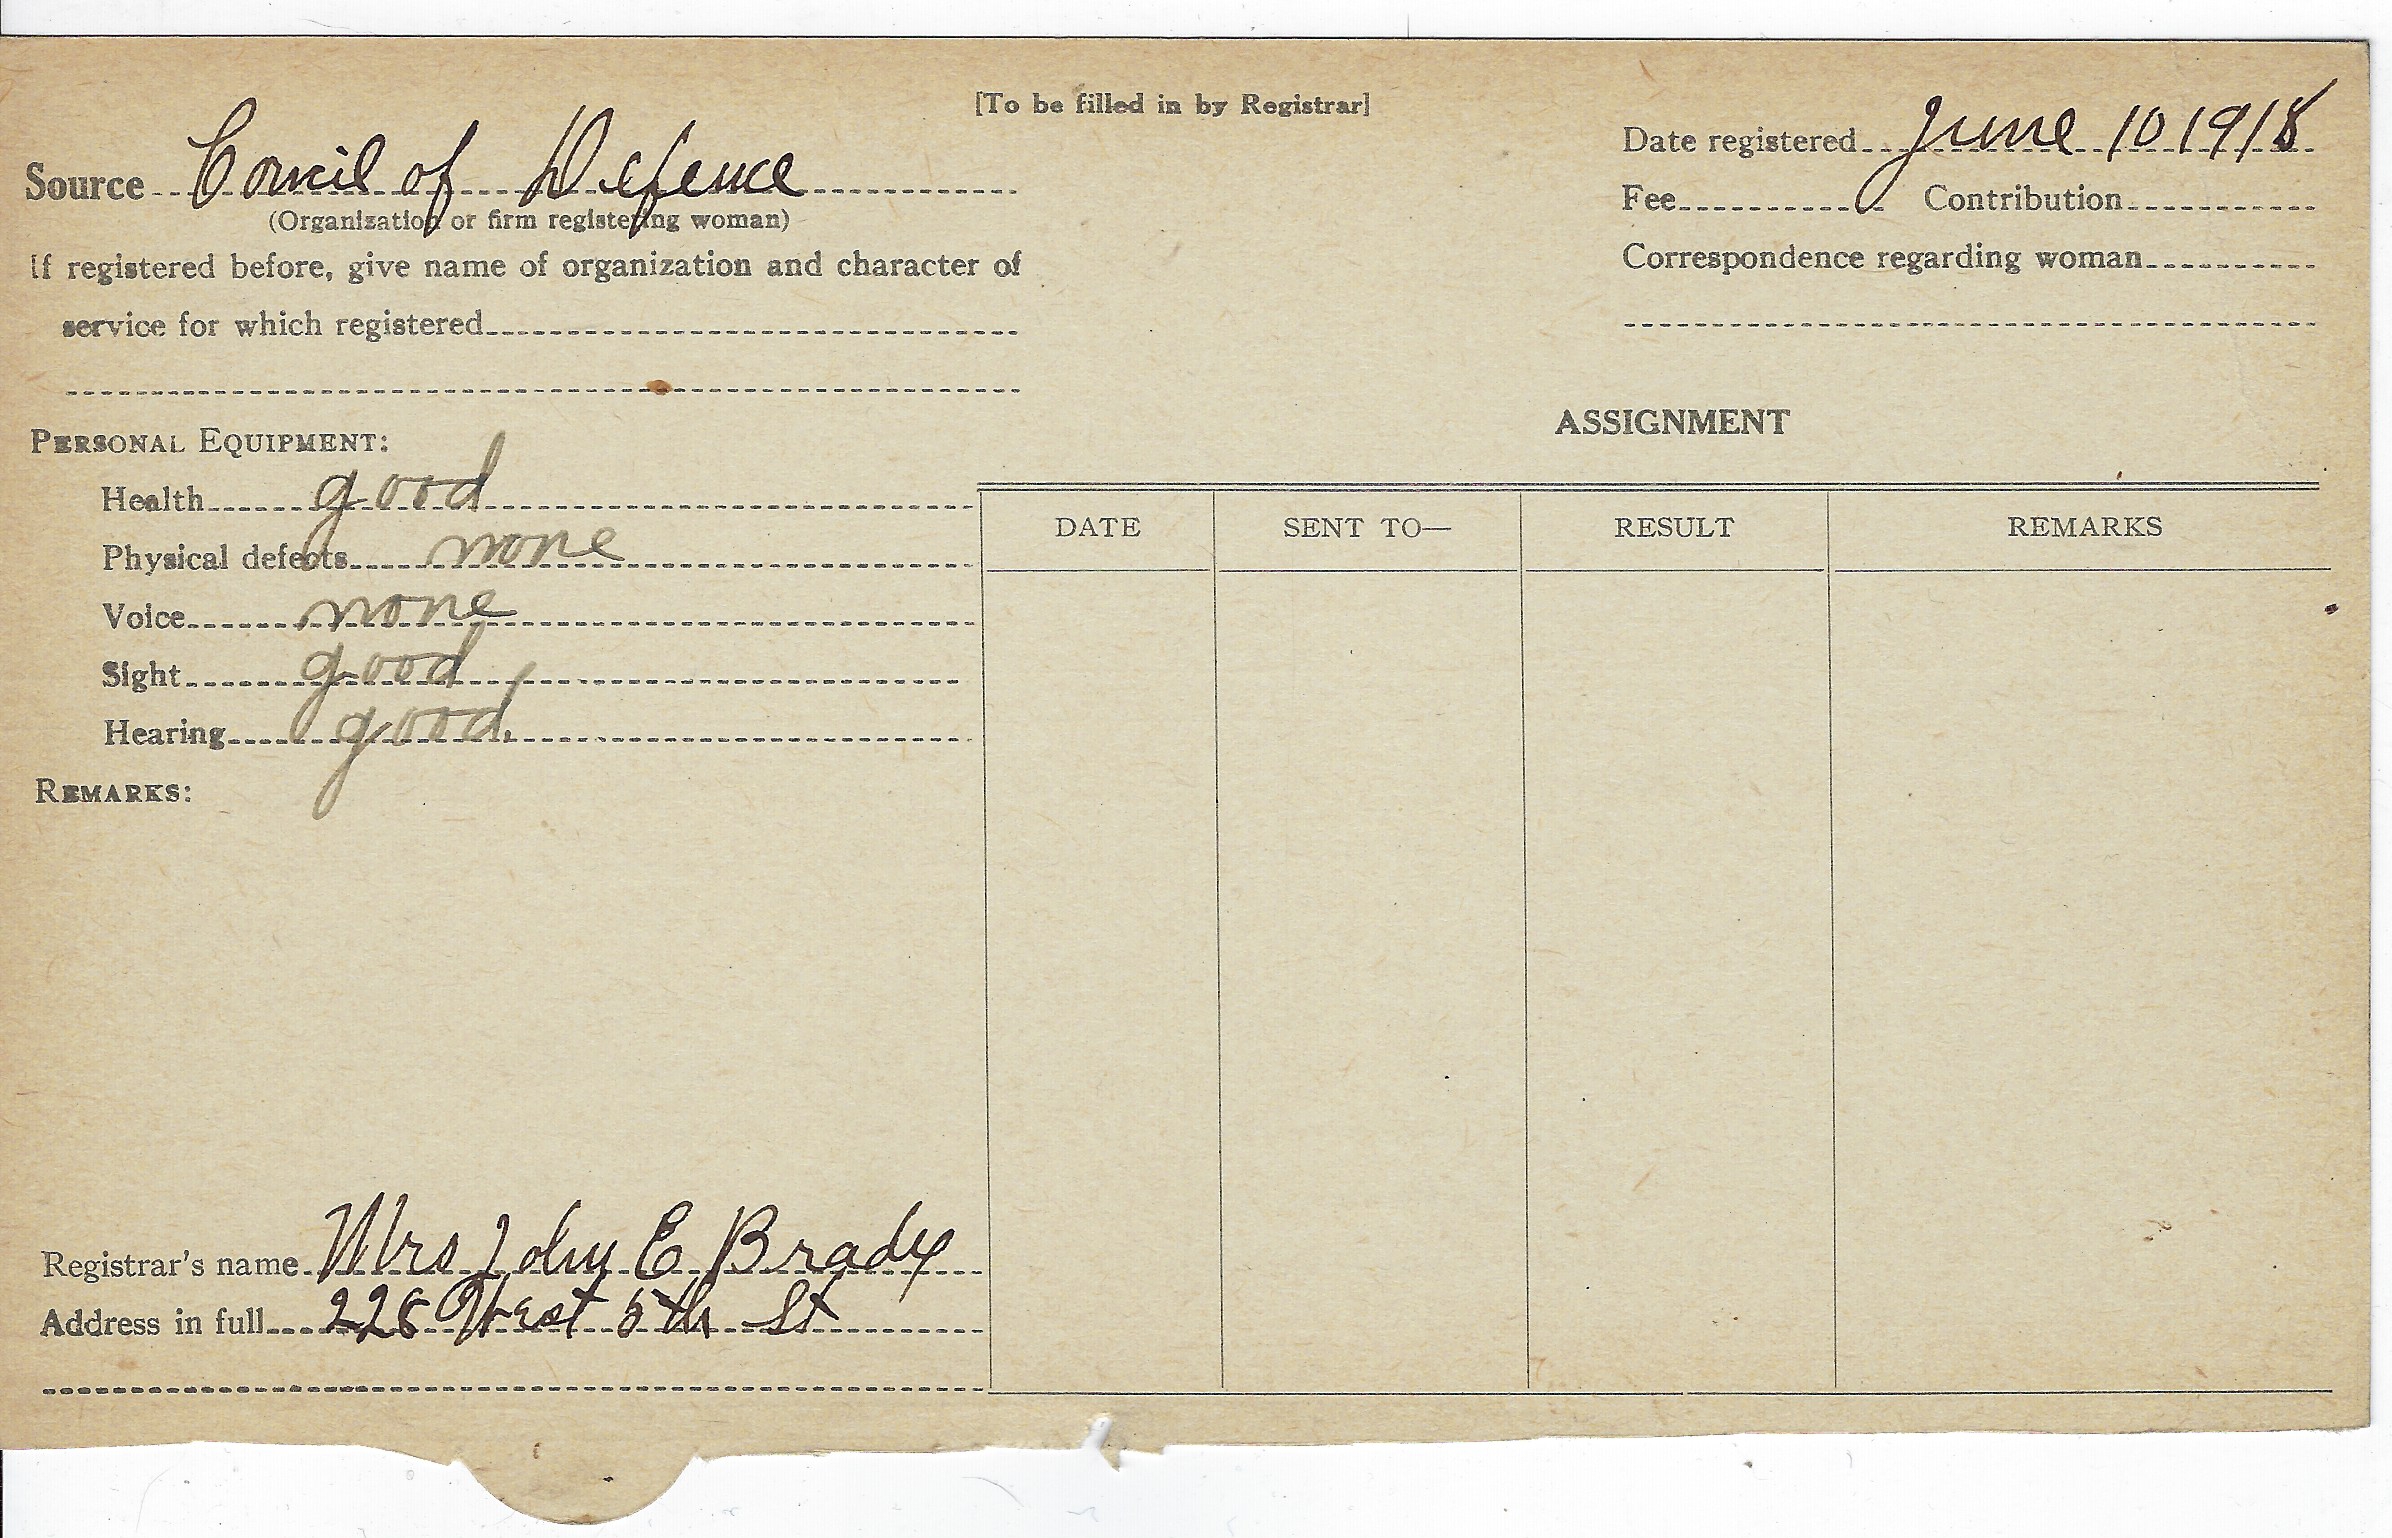 [To be filled in by Registrar]
Source Council of Defence
(Organization or firm registering woman)
If registered before, give name of organization and character of
service for which registered
Date registered June 10 1918
Fee Contribution
Correspondence regarding woman
PERSONAL EQUIPMENT:
Health good
Physical defects none
Voice none
Sight good
Hearing good.
REMARKS:
ASSIGNMENT
DATE SENT TO— RESULT REMARKS
Registrar's name Mrs John E Brady
Address in full 228 West 5th St